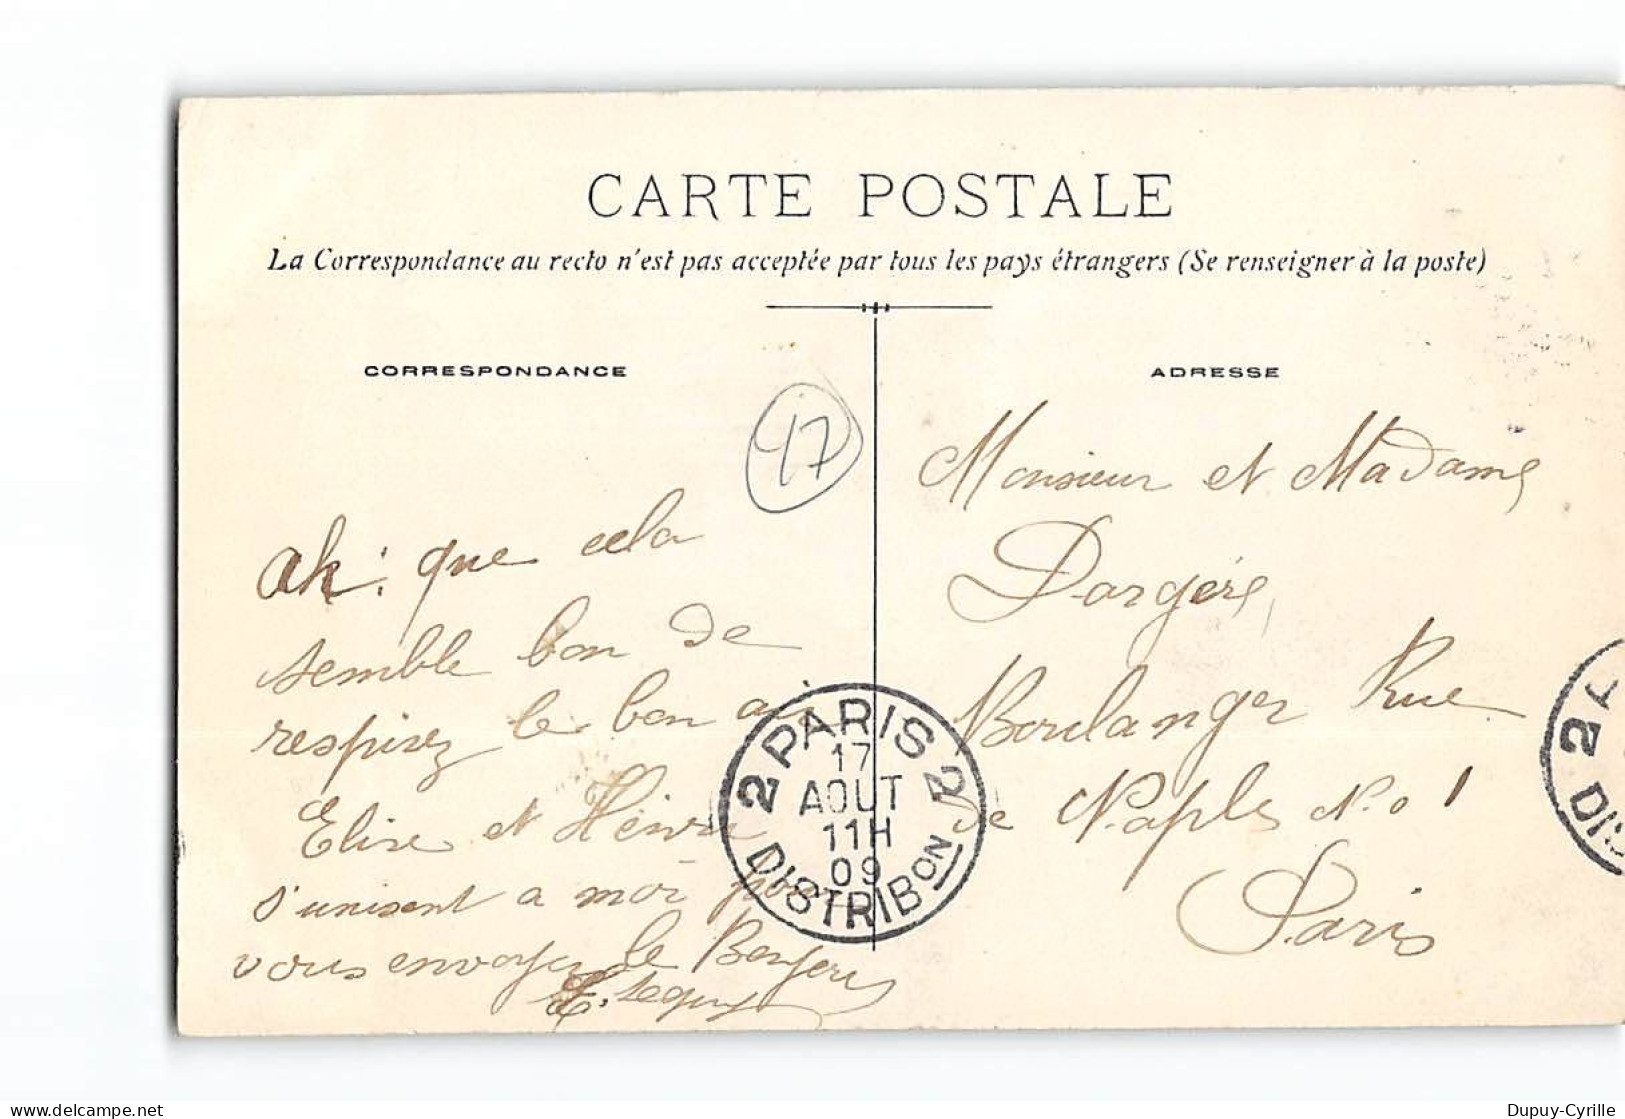 CARTE POSTALE
La Correspondance au recto n'est pas acceptée par tous les pays étrangers (Se renseigner à la poste)
CORRESPONDANCE
ADRESSE
17
Ah! que cela
semble bon de
respirez le bon air
Elise et Henri
s'unisent a moi pour
vous envoyer le
Monsieur et Madame
Dargère
Boulanger Rue
de Naples No 1
Paris
2 PARIS 2
17
AOUT
11H
09
DISTRIBON
2
Dupuy-Cyrille